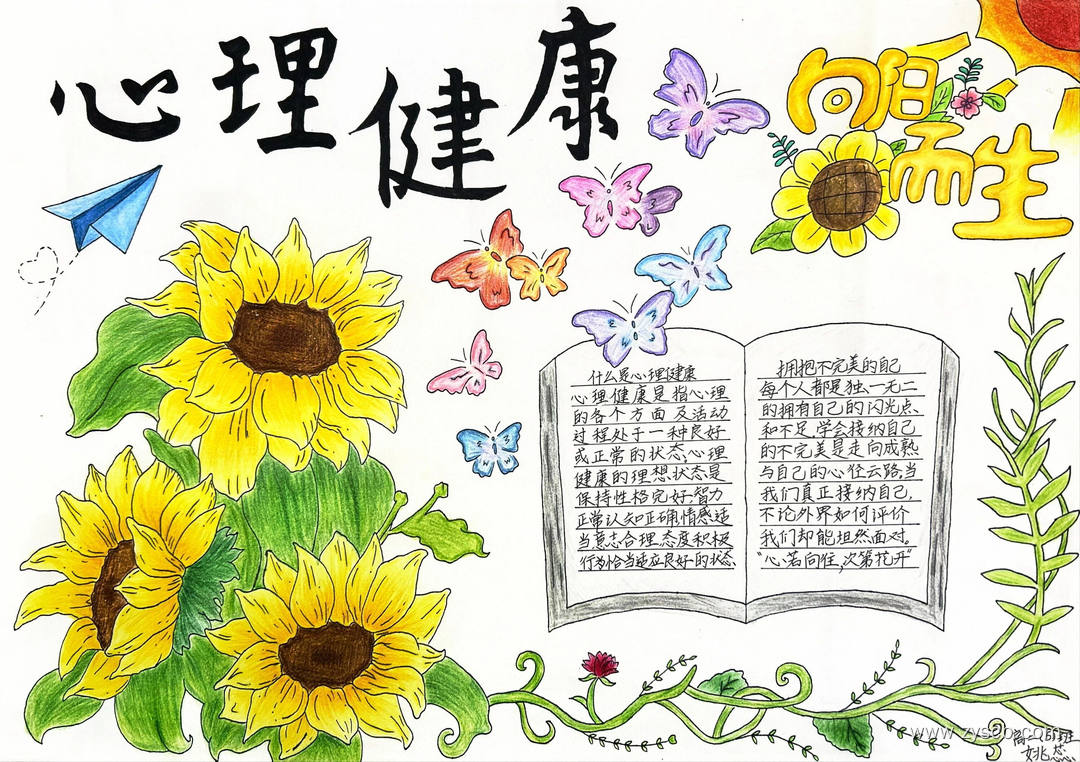 心理健康
向阳而生
什么是心理健康
心理健康是指心理
的各个方面及活动
过程处于一种良好
或正常的状态,心理
健康的理想状态是
保持性格完好,智力
正常认知正确,情感适
当意志合理,态度积极
行为恰当适应良好的状态
拥抱不完美的自己
每个人都是独一无二
的拥有自己的闪光点
和不足,学会接纳自己
的不完美是走向成熟
与自己的心径云路,当
我们真正接纳自己,
不论外界如何评价
我们却能坦然面对,
"心若向住,次第花开"